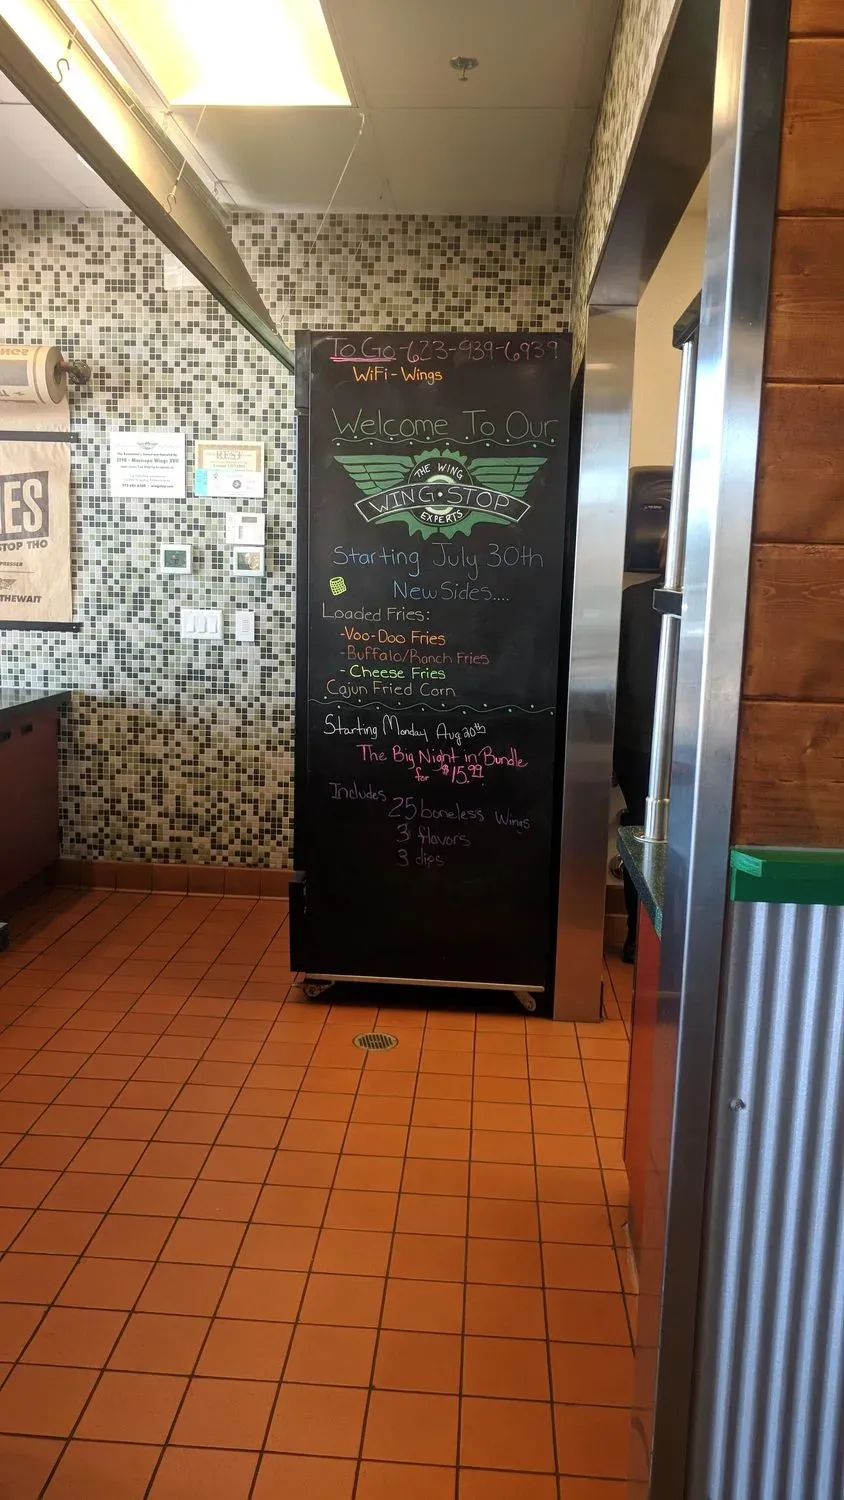 To Go-623-939-6939
WiFi-Wings
Welcome To Our
THE WING
WING·STOP
EXPERTS
Starting July 30th
New Sides....
Loaded Fries:
-Voo-Doo Fries
-Buffalo/Ranch Fries
- Cheese Fries
Cajun Fried Corn
Starting Monday Aug 20th
The Big Night in Bundle
for $15.99
Includes
25 boneless Wings
3 flavors
3 dips
IES
STOP THO
PRESSER
THEWAIT
BEST